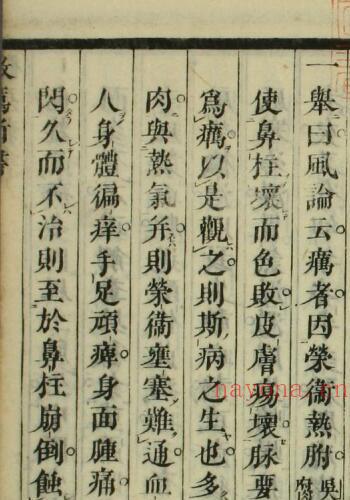 一擧曰風論云癘者因榮衞熱胕
使鼻柱壞而色敗皮膚瘍壞脉要
爲癘以是觀之則斯病之生也多
肉與熱氣并則榮衞壅塞難通血
人身體徧痒手足頑痺身面腫痛
閃久而不治則至於鼻柱崩倒蝕